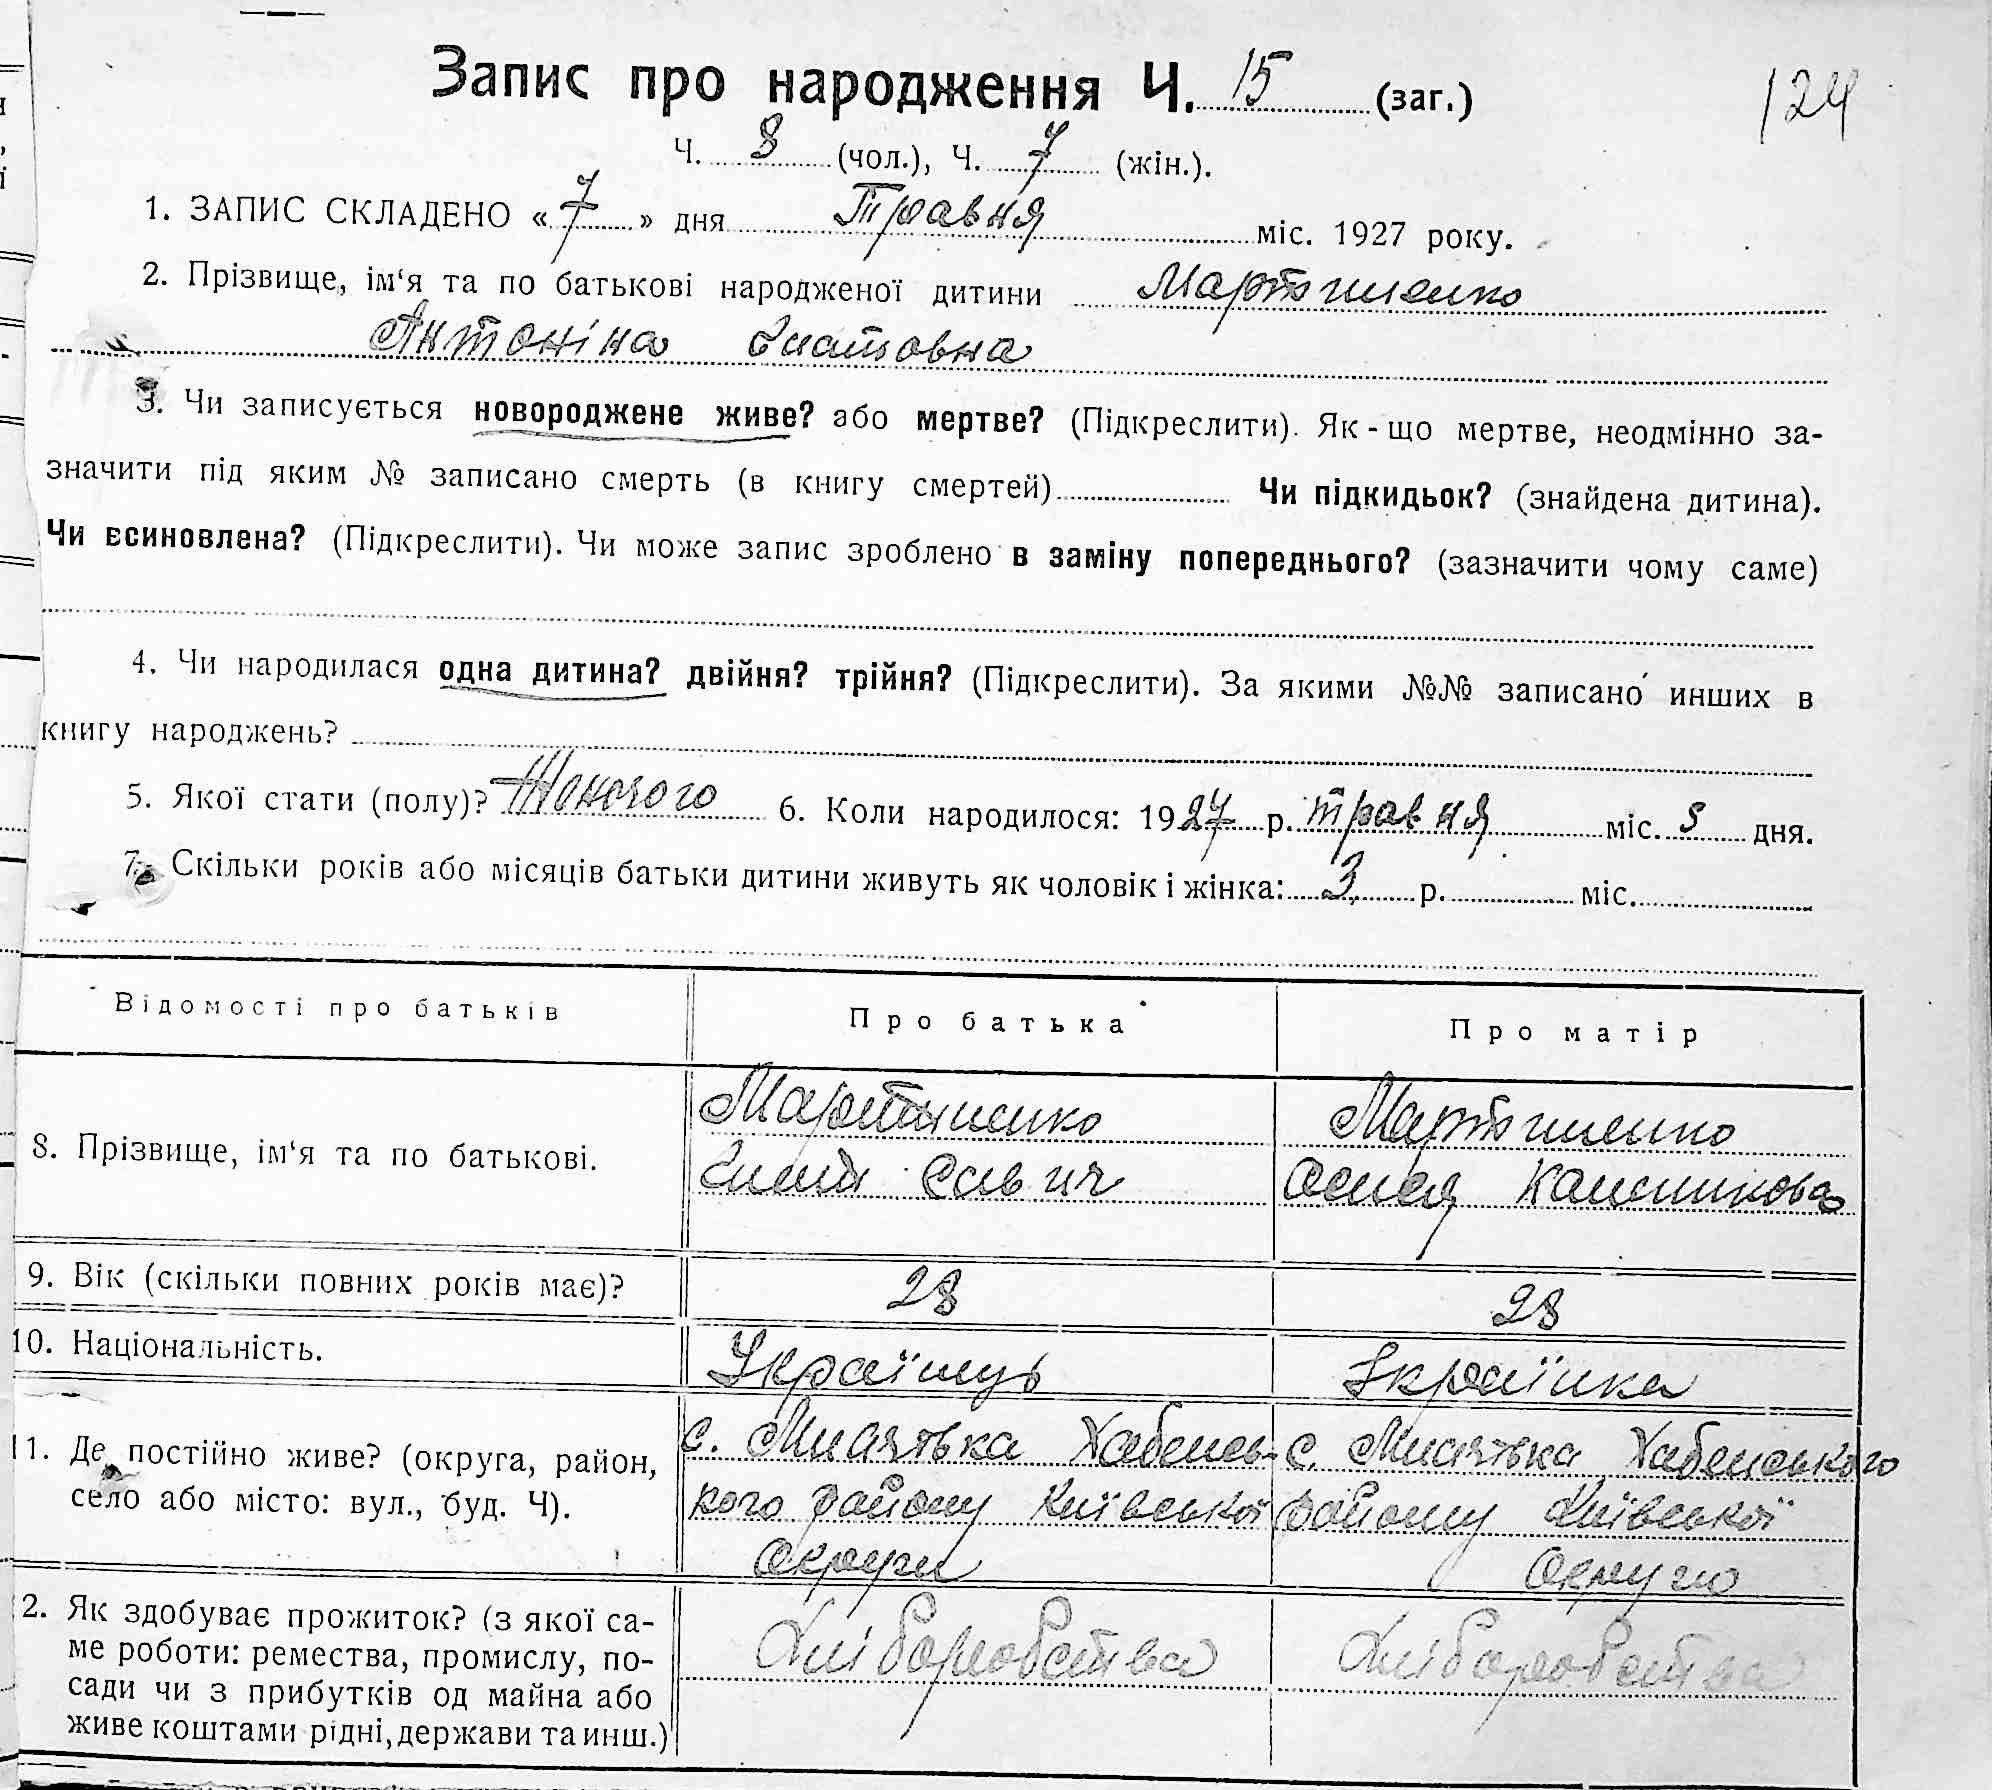 Запис про народження Ч. 15 (заг.)
124
Ч. 8 (чол.), Ч. 7 (жін.).
1. ЗАПИС СКЛАДЕНО «7» дня Травня міс. 1927 року.
2. Прізвище, ім‘я та по батькові народженої дитини Мартиненко
Антоніна Гнатовна
3. Чи записується новороджене живе? або мертве? (Підкреслити). Як-що мертве, неодмінно за-
значити під яким № записано смерть (в книгу смертей) Чи підкидьок? (знайдена дитина).
Чи всиновлена? (Підкреслити). Чи може запис зроблено в заміну попереднього? (зазначити чому саме)
4. Чи народилася одна дитина? двійня? трійня? (Підкреслити). За якими №№ записано инших в
книгу народжень?
5. Якої стати (полу)? Жіночого 6. Коли народилося: 1927 р. травня міс. 5 дня.
7. Скільки років або місяців батьки дитини живуть як чоловік і жінка: 3 р. міс.
Відомості про батьків Про батька Про матір
8. Прізвище, ім‘я та по батькові. Мартиненко Мартиненко
Гнат Савич
9. Вік (скільки повних років має)? 28 28
10. Національність. Українець Українка
11. Де постійно живе? (округа, район, с. Хабенсь- с. Хабенського
село або місто: вул., буд. Ч). кого району Київської району Київської
Округи Округи
12. Як здобуває прожиток? (з якої са- Хліборобства Хліборобства
ме роботи: ремества, промислу, по-
сади чи з прибутків од майна або
живе коштами рідні, держави та инш.)